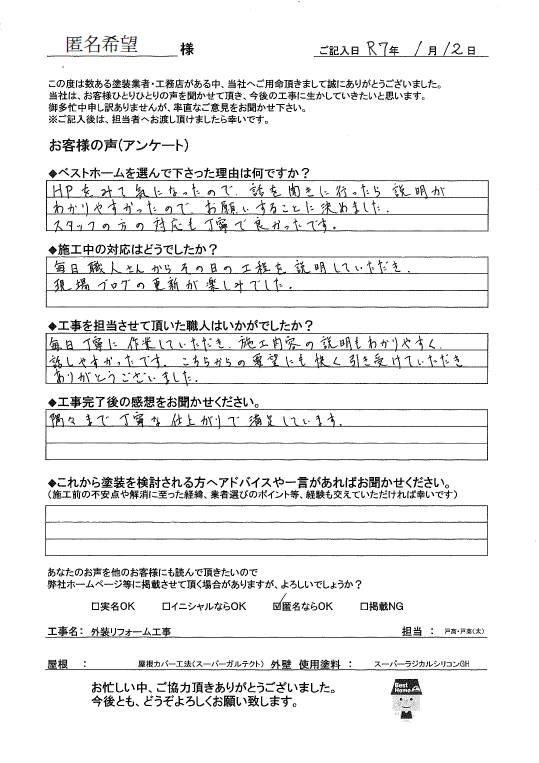 匿名希望 様
ご記入日 R7年 1月 12日
この度は数ある塗装業者・工務店がある中、当社へご用命頂きまして誠にありがとうございました。
当社は、お客様ひとりひとりの声を聞かせて頂き、今後の工事に生かしていきたいと思います。
御多忙中申し訳ありませんが、率直なご意見をお聞かせ下さい。
※ご記入後は、担当者へお渡し頂けましたら幸いです。
お客様の声(アンケート)
◆ベストホームを選んで下さった理由は何ですか？
HPをみて気になったので、話を聞きに行ったら説明が
わかりやすかったので、お願いすることに決めました。
スタッフの方の対応も丁寧で良かったです。
◆施工中の対応はどうでしたか？
毎日職人さんからその日の工程を説明していただき、
現場ブログの更新が楽しみでした。
◆工事を担当させて頂いた職人はいかがでしたか？
毎日丁寧に作業していただき、施工内容の説明もわかりやすく、
話しやすかったです。こちらからの要望にも快く引き受けていただき
ありがとうございました。
◆工事完了後の感想をお聞かせください。
隅々まで丁寧な仕上がりで満足しています。
◆これから塗装を検討される方へアドバイスや一言があればお聞かせください。
（施工前の不安点や解消に至った経緯、業者選びのポイント等、経験も交えていただければ幸いです）
あなたのお声を他のお客様にも読んで頂きたいので
弊社ホームページ等に掲載させて頂く場合がありますが、よろしいでしょうか？
□実名OK □イニシャルならOK ☑匿名ならOK □掲載NG
工事名： 外装リフォーム工事 担当 ： 戸高・戸高(太)
屋根 ： 屋根カバー工法(スーパーガルテクト) 外壁 使用塗料 ： スーパーラジカルシリコンGH
お忙しい中、ご協力頂きありがとうございました。
今後とも、どうぞよろしくお願い致します。
Best
Home